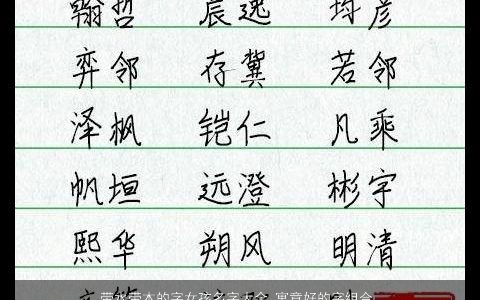 翰哲 宸逸 均彦
弈邻 存冀 若邻
泽枫 铠仁 凡乘
帆垣 远澄 彬宇
熙华 朔风 明清
带水带木的字女孩名字大全 寓意好的字组合